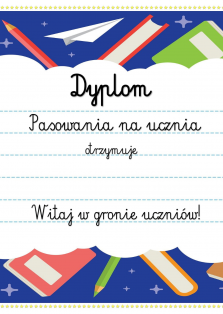 Dyplom
Pasowania na ucznia
otrzymuje
Witaj w gronie uczniów!